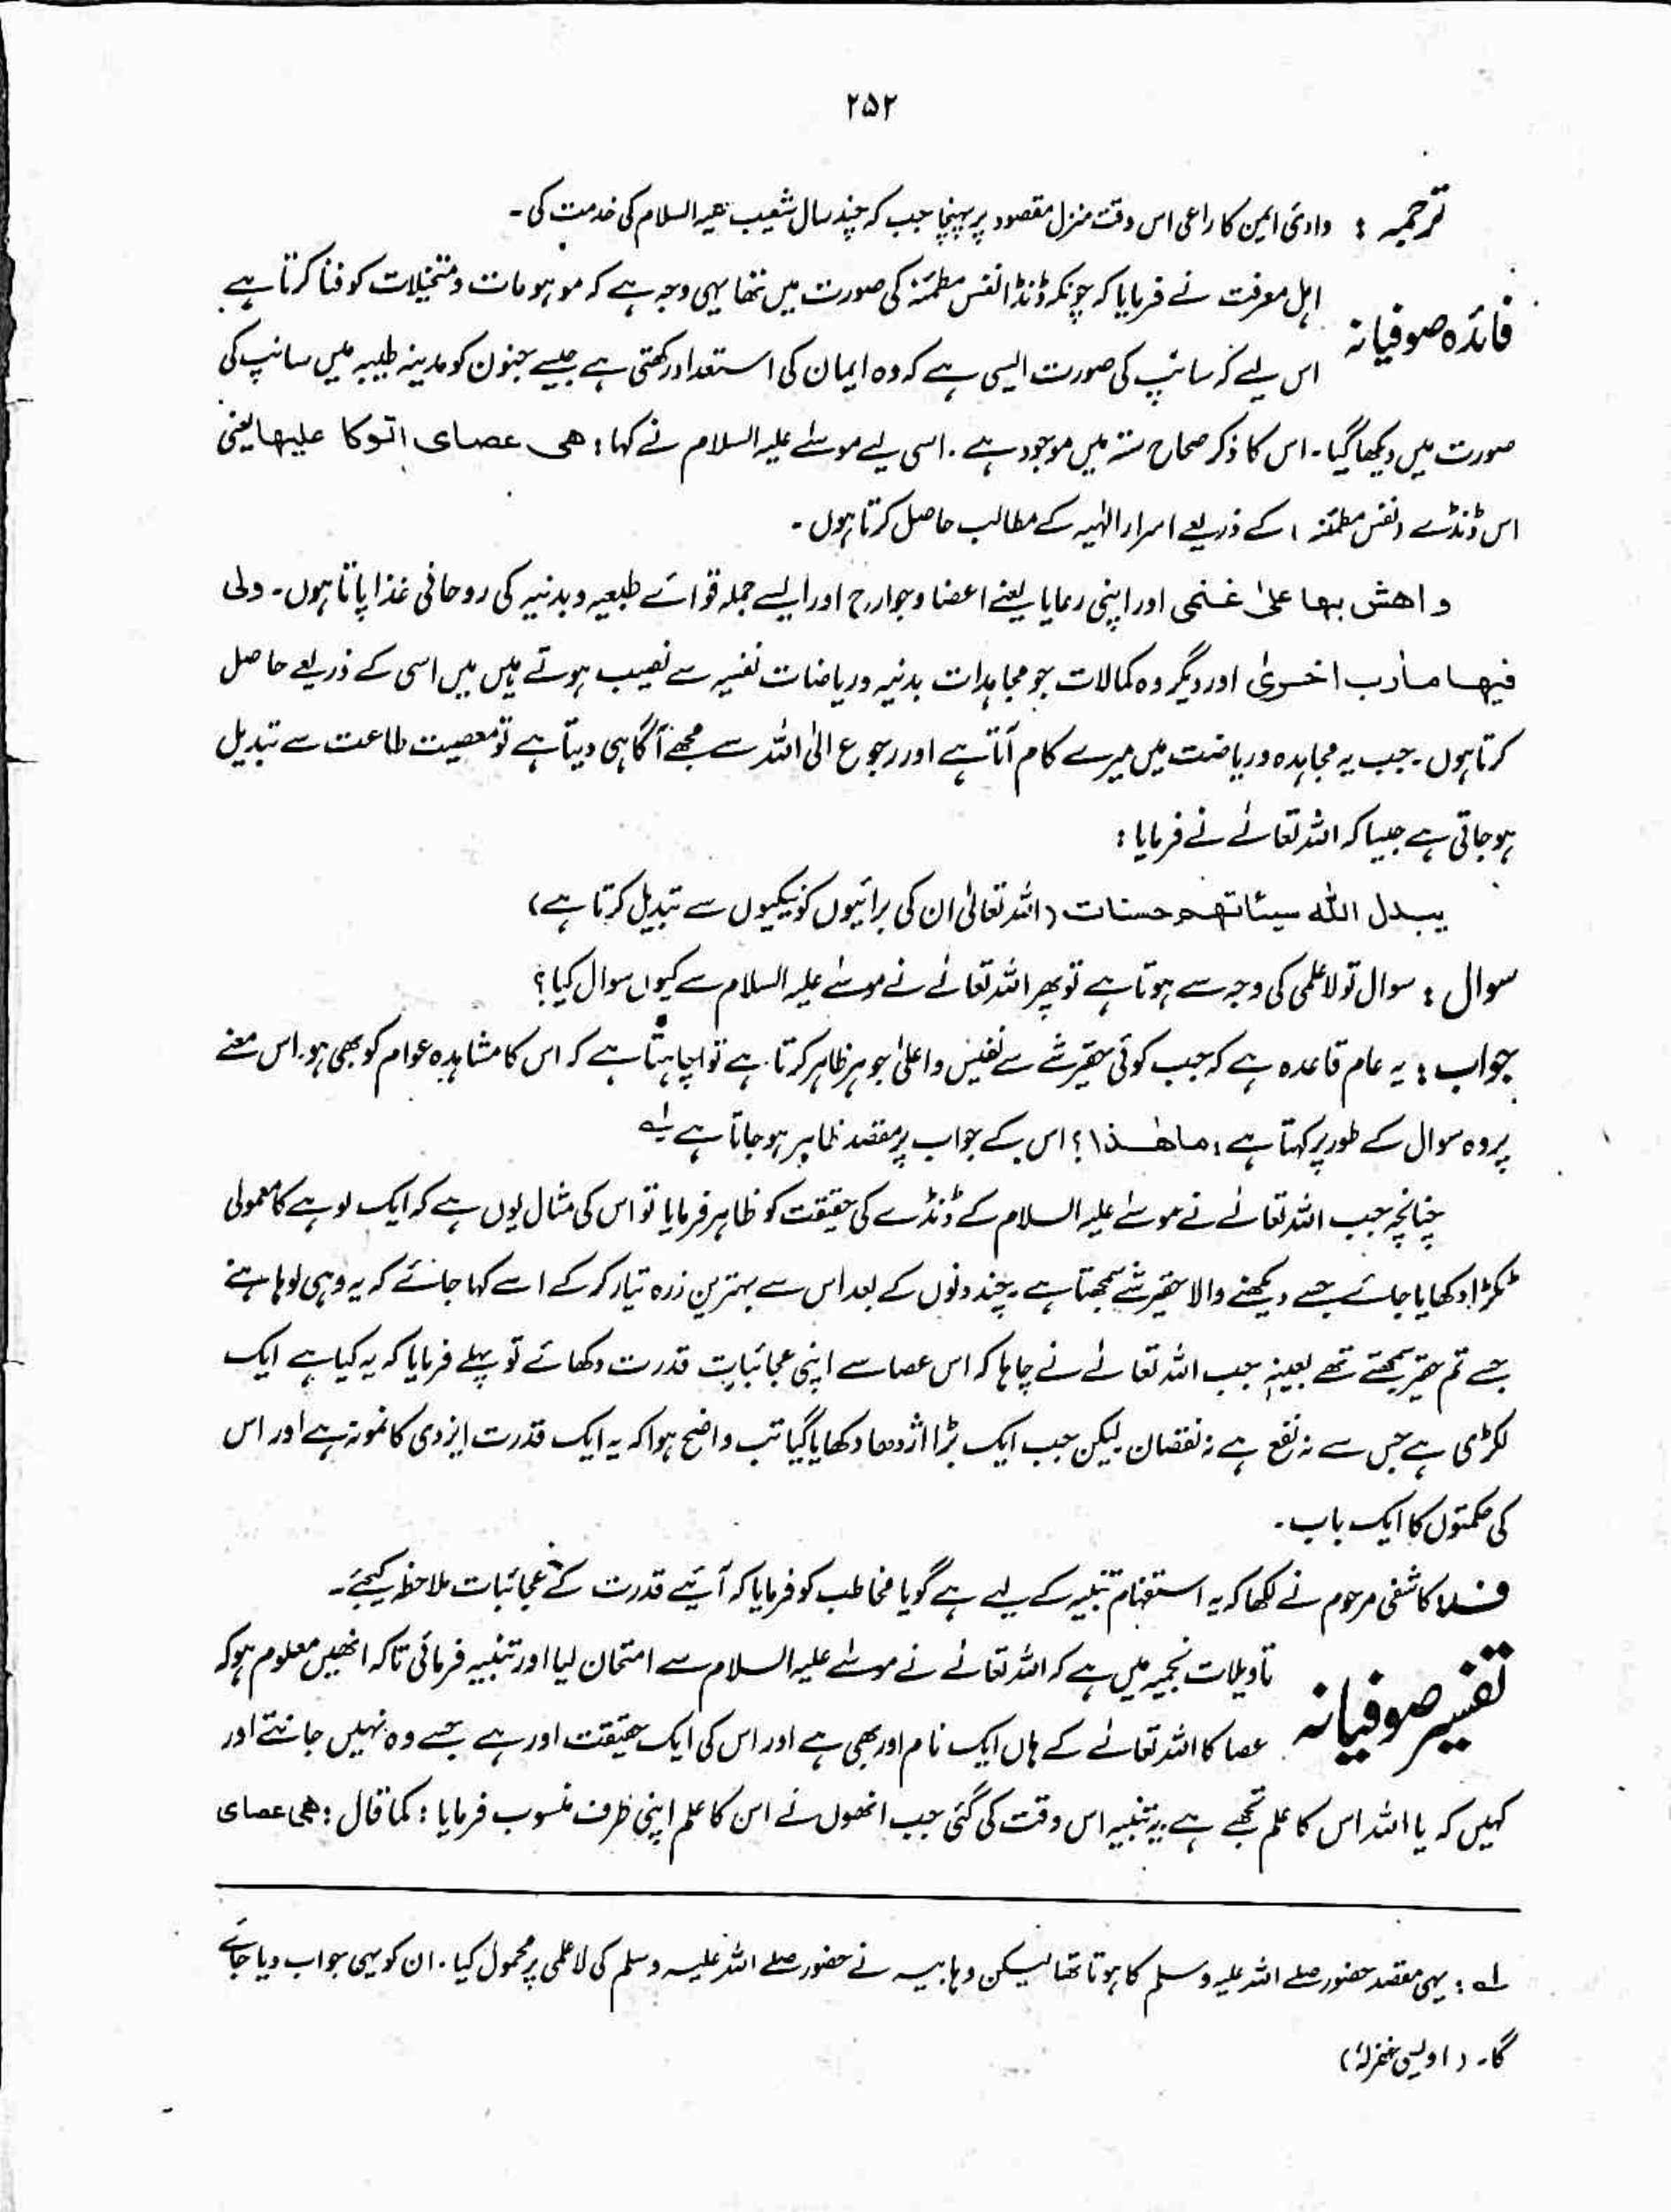 ۲۵۲
ترجمہ : وادئ ایمن کا راعی اس وقت منزل مقصود پر پہنچا جب کہ چند سال شعیب علیہ السلام کی خدمت کی ۔
فائدہ صوفیانہ
اہل معرفت نے فرمایا کہ چونکہ ڈنڈا نفس مطمئنہ کی صورت میں تھا یہی وجہ ہے کہ موہومات و متخیلات کو فنا کرتا ہے
اس لیے کہ سانپ کی صورت ایسی ہے کہ وہ ایمان کی استعداد رکھتی ہے جیسے جنوں کو مدینہ طیبہ میں سانپ کی
صورت میں دیکھا گیا ۔ اس کا ذکر صحاح ستہ میں موجود ہے ۔ اسی لیے موسےٰ علیہ السلام نے کہا : ھی عصای اتوکا علیھا یعنی
اس ڈنڈے (نفس مطمئنہ) کے ذریعے اسرار الٰہیہ کے مطالب حاصل کرتا ہوں ۔
و اھش بھا علیٰ غنمی اور اپنی رعایا یعنے اعضا و جوارح اور ایسے جملہ قوائے طبعیہ و بدنیہ کی روحانی غذا پاتا ہوں ۔ ولی
فیھا مأرب اخریٰ اور دیگر وہ کمالات جو مجاہدات بدنیہ و ریاضات نفسیہ سے نصیب ہوتے ہیں میں اسی کے ذریعے حاصل
کرتا ہوں ۔ جب یہ مجاہدہ و ریاضت میں میرے کام آتا ہے اور رجوع الی اللہ سے مجھے آگاہی دیتا ہے تو معصیت طاعت سے تبدیل
ہو جاتی ہے جیسا کہ اللہ تعالےٰ نے فرمایا :
یبدل اللہ سیئاتھم حسنات (اللہ تعالیٰ ان کی برائیوں کو نیکیوں سے تبدیل کرتا ہے)
سوال : سوال تو لاعلمی کی وجہ سے ہوتا ہے تو پھر اللہ تعالےٰ نے موسےٰ علیہ السلام سے کیوں سوال کیا ؟
جواب : یہ عام قاعدہ ہے کہ جب کوئی حقیر شے سے نفیس و اعلیٰ جوہر ظاہر کرتا ہے تو چاہتا ہے کہ اس کا مشاہدہ عوام کو بھی ہو ۔ اس معنے
پر وہ سوال کے طور پر کہتا ہے : ما ھٰذا ؟ اس کے جواب پر مقصد ظاہر ہو جاتا ہے ۔ لہ
چنانچہ جب اللہ تعالےٰ نے موسےٰ علیہ السلام کے ڈنڈے کی حقیقت کو ظاہر فرمایا تو اس کی مثال یوں ہے کہ ایک لوہے کا معمولی
ٹکڑا دکھایا جائے جسے دیکھنے والا حقیر شے سمجھتا ہے ۔ چند دنوں کے بعد اس سے بہترین زرہ تیار کرکے اسے کہا جائے کہ یہ وہی لوہا ہے
جسے تم حقیر سمجھتے تھے بعینہٖ جب اللہ تعالےٰ نے چاہا کہ اس عصا سے اپنی عجائبات قدرت دکھائے تو پہلے فرمایا کہ یہ کیا ہے ایک
لکڑی ہے جس سے نہ نفع ہے نہ نقصان لیکن جب ایک بڑا اژدھا دکھایا گیا تب واضح ہوا کہ یہ ایک قدرت ایزدی کا نمونہ ہے اور اس
کی حکمتوں کا ایک باب ۔
ف : کاشفی مرحوم نے لکھا کہ یہ استفہام تنبیہ کے لیے ہے گویا مخاطب کو فرمایا کہ آیئے قدرت کے عجائبات ملاحظہ کیجئے ۔
تفسیر صوفیانہ
تاویلات نجمیہ میں ہے کہ اللہ تعالےٰ نے موسےٰ علیہ السلام سے امتحان لیا اور تنبیہ فرمائی تاکہ انھیں معلوم ہو کہ
عصا کا اللہ تعالےٰ کے ہاں ایک نام اور بھی ہے اور اس کی ایک حقیقت اور ہے جسے وہ نہیں جانتے اور
کہیں کہ یا اللہ اس کا علم تجھے ہے یہ تنبیہ اس وقت کی گئی جب انھوں نے اس کا علم اپنی طرف منسوب فرمایا : کما قال : ھی عصای
لہ : یہی مقصد حضور صلے اللہ علیہ وسلم کا ہوتا تھا لیکن وہابیہ نے حضور صلے اللہ علیہ وسلم کی لاعلمی پر محمول کیا ۔ ان کو یہی جواب دیا جائے
گا ۔ (اویسی غفرلہٗ)